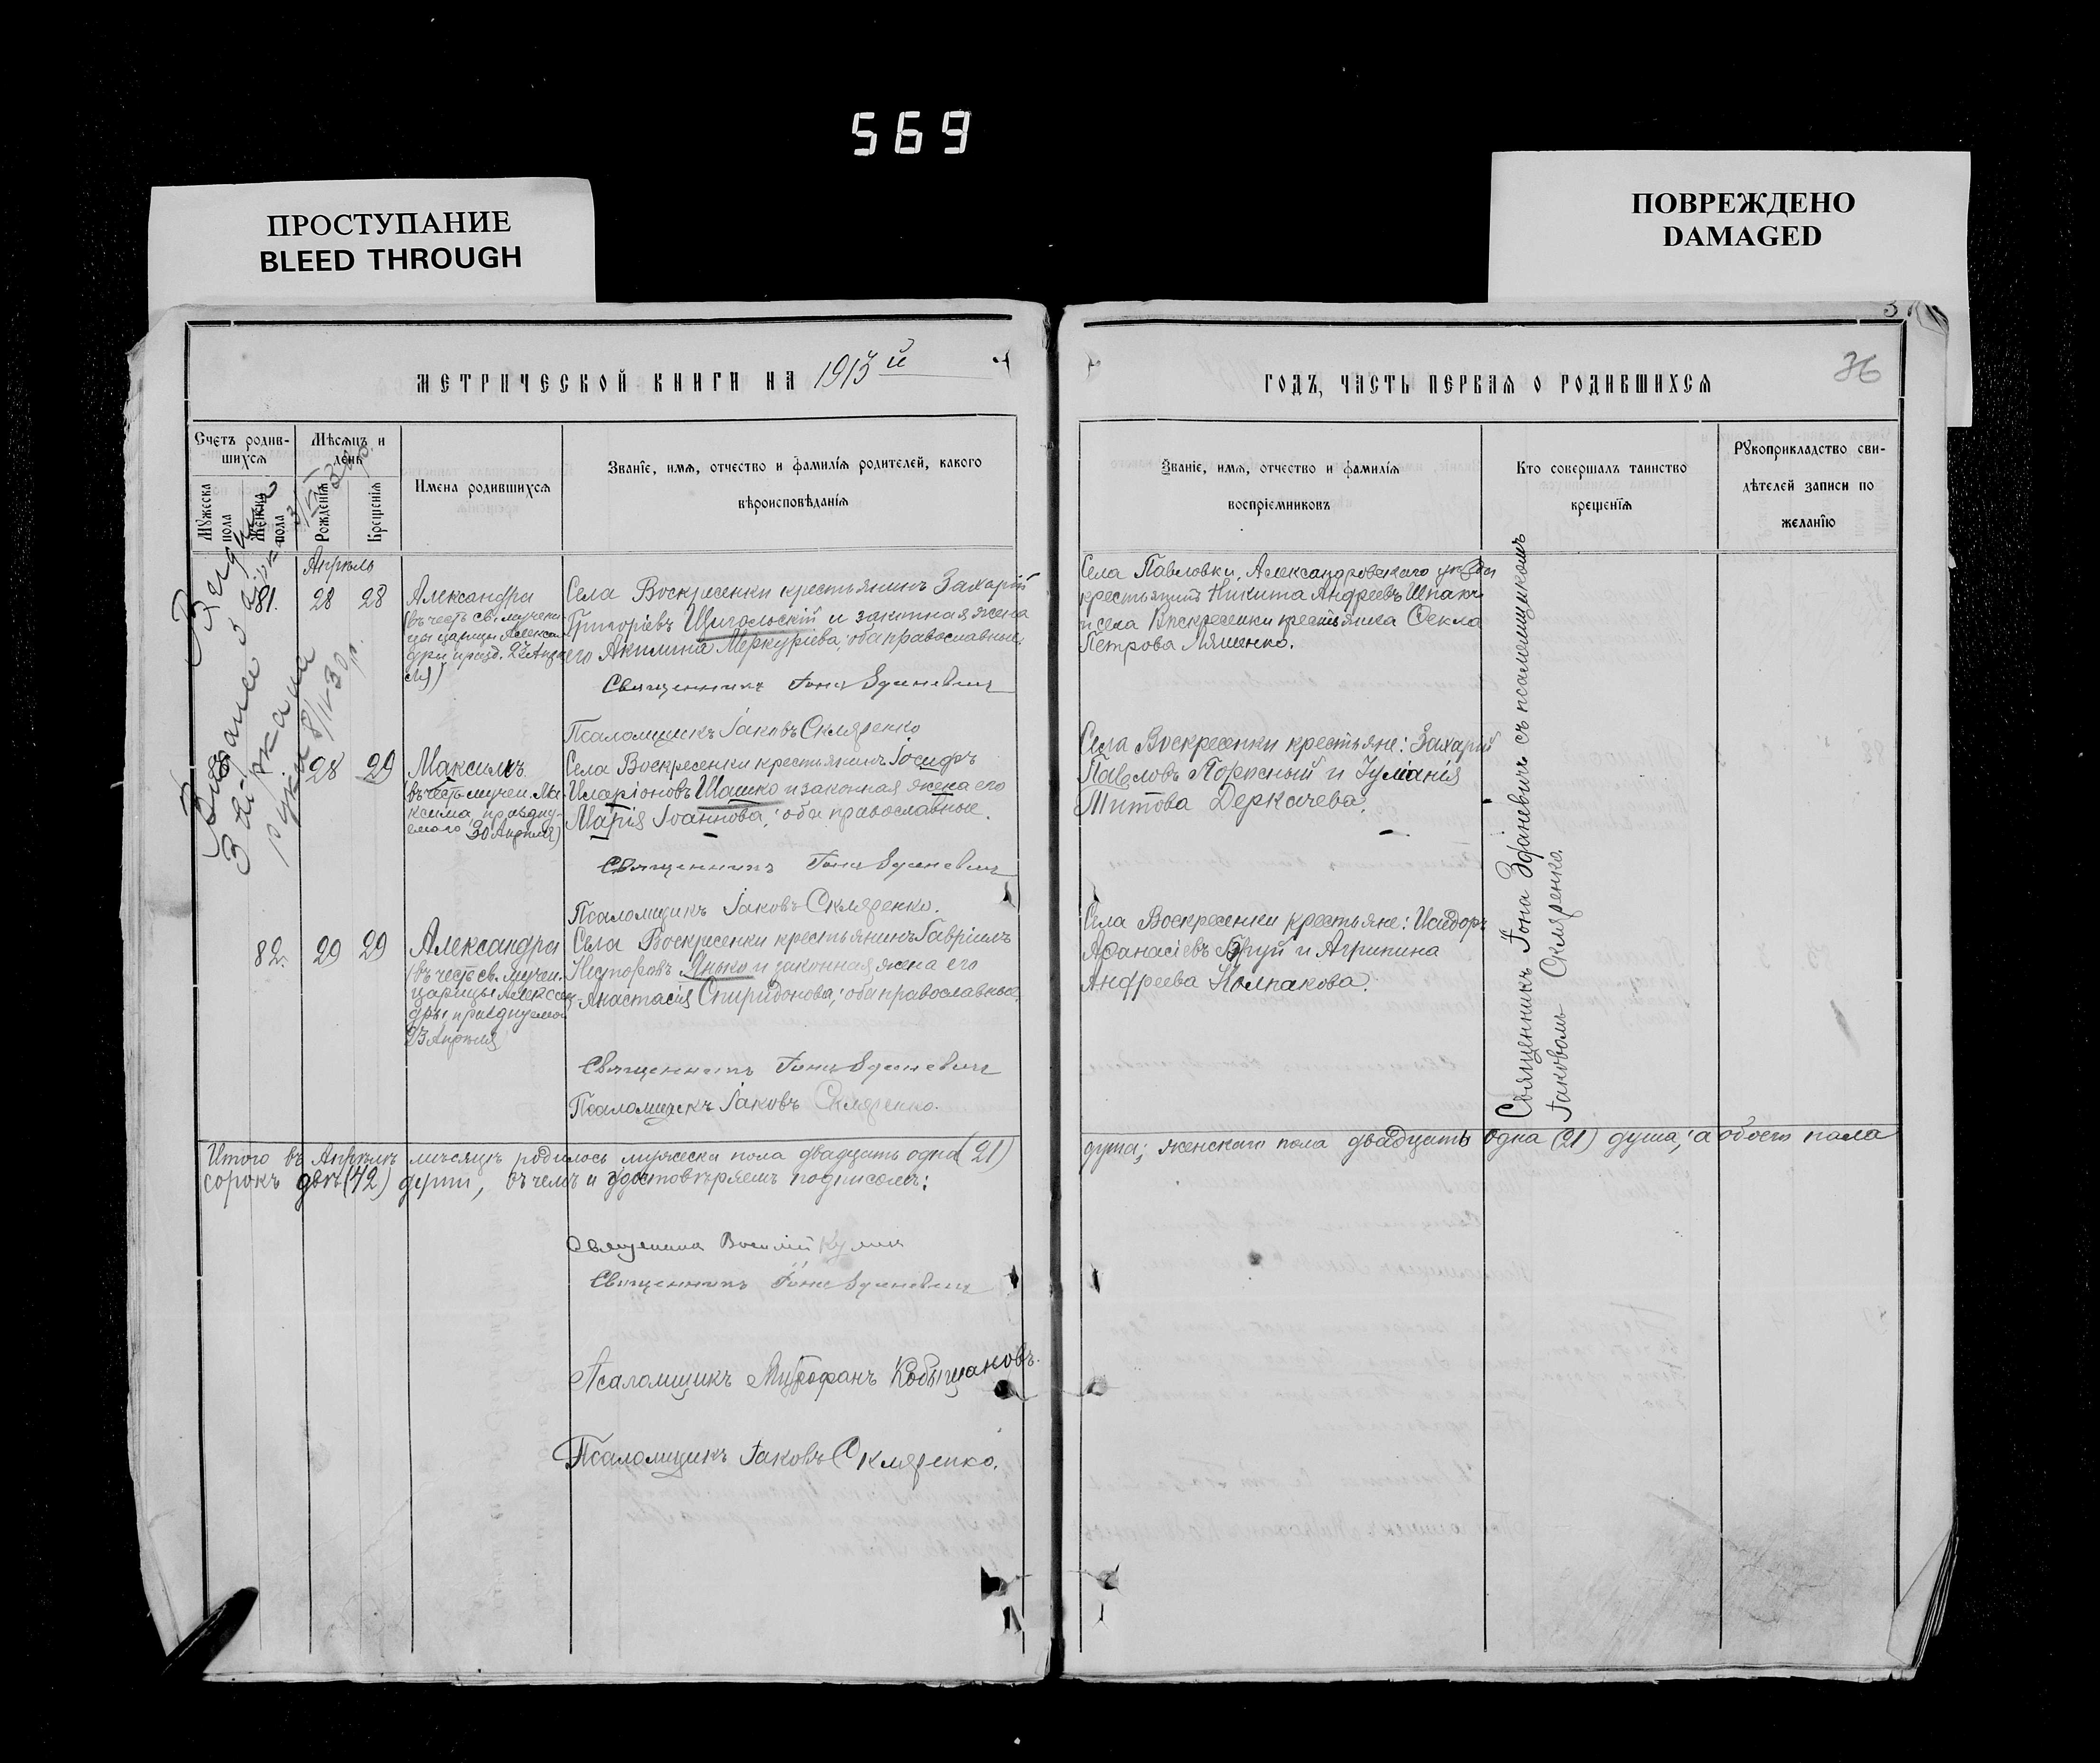 569
ПРОСТУПАНИЕ
BLEED THROUGH
ПОВРЕЖДЕНО
DAMAGED
МЕТРИЧЕСКОЙ КНИГИ НА 1913 й
Счетъ родив-
шихся
Мѣсяцъ и
день
Мужеска
пола
Женска
пола
Рожденія
Крещенія
Имена родившихся
Званіе, имя, отчество и фамилія родителей, какого
вѣроисповѣданія
Апрѣль
81. 28 28
Александра
(въ честь св. мучени
цы царицы Алексан
дры празд. 23 Апрѣ
ля)
Села Воскресенки крестьянинъ Захарій
Григоріевъ Щигольскій и законная жена
его Акилина Меркуріева; оба православные.
Священникъ Іона Зданевичъ
Псаломщикъ Іаковъ Скляренко
28 29
Максимъ
(въ честь мучен. Ма-
ксима, праздну-
емаго 30 Апрѣля)
Села Воскресенки крестьянинъ Іосифъ
Иларіоновъ Шашко и законная жена его
Марія Іоаннова; оба православные.
Священникъ Іона Зданевичъ
Псаломщикъ Іаковъ Скляренко.
82. 29 29
Александра
(въ честь св. мучен.
царицы Алексан-
дры празднуемой
23 Апрѣля
Села Воскресенки крестьянинъ Гавріилъ
Несторовъ Янько и законная жена его
Анастасія Спиридонова; оба православные.
Священникъ Іона Зданевичъ
Псаломщикъ Іаковъ Скляренко.
Итого въ Апрѣлѣ мѣсяцѣ родилось мужеска пола двадцать одна (21)
сорокъ двѣ (42) души, въ чемъ и удостовѣряемъ подписомъ:
Священникъ Іона Зданевичъ
Псаломщикъ Митрофанъ Кобыщановъ.
Псаломщикъ Іаковъ Скляренко.
36
ГОДЪ, ЧАСТЬ ПЕРВАЯ О РОДИВШИХСЯ
Званіе, имя, отчество и фамилія
воспріемниковъ
Кто совершалъ таинство
крещенія
Рукоприкладство сви-
дѣтелей записи по
желанію
Села Павловки, Александровскаго уѣзда
крестьянинъ Никита Андреевъ Шпакъ
и села Воскресенки крестьянка Ѳекла
Петрова Ляшенко.
Села Воскресенки крестьяне: Захарій
Павловъ и Іуліанія
Титова Деркачева.
Села Воскресенки крестьяне: Исидоръ
Аѳанасіевъ Бруй и Агрипина
Андреева Колпакова.
Священникъ Іона Зданевичъ съ псаломщикомъ
Іаковомъ Скляренко.
душа; женскаго пола двадцать одна (21) душа; а обоего пола